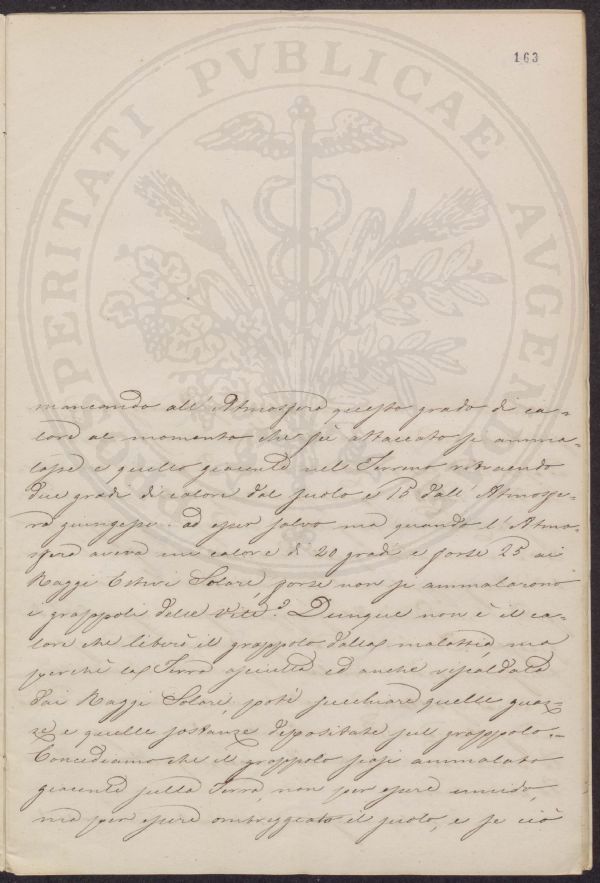 163
PROSPERITATI PVBLICAE AVGENDAE
mancando all' Atmosfera questo grado di ca-
lore al momento che fù attaccato si amma-
lasse e quello giacente nel Terreno ritraendo
due gradi di calore dal suolo e 15 dall' Atmosfe-
ra giungesse ad esser salvo ma quando l' Atmo-
sfera aveva un calore di 20 gradi e forse 25 ai
Raggi Estivi Solari, forse non si ammalarono
i grappoli delle Viti? Dunque non è il ca-
lore che liberò il grappolo dalla malattia ma
perchè la Terra asciutta ed anche riscaldata
dai Raggi Solari, potè succhiare quelle guaz-
ze e quelle sostanze depositate sul grappolo.-
Concediamo che il grappolo siasi ammalato
giacente sulla Terra, non per essere umido,
ma per essere ombreggiato il suolo, e se ciò